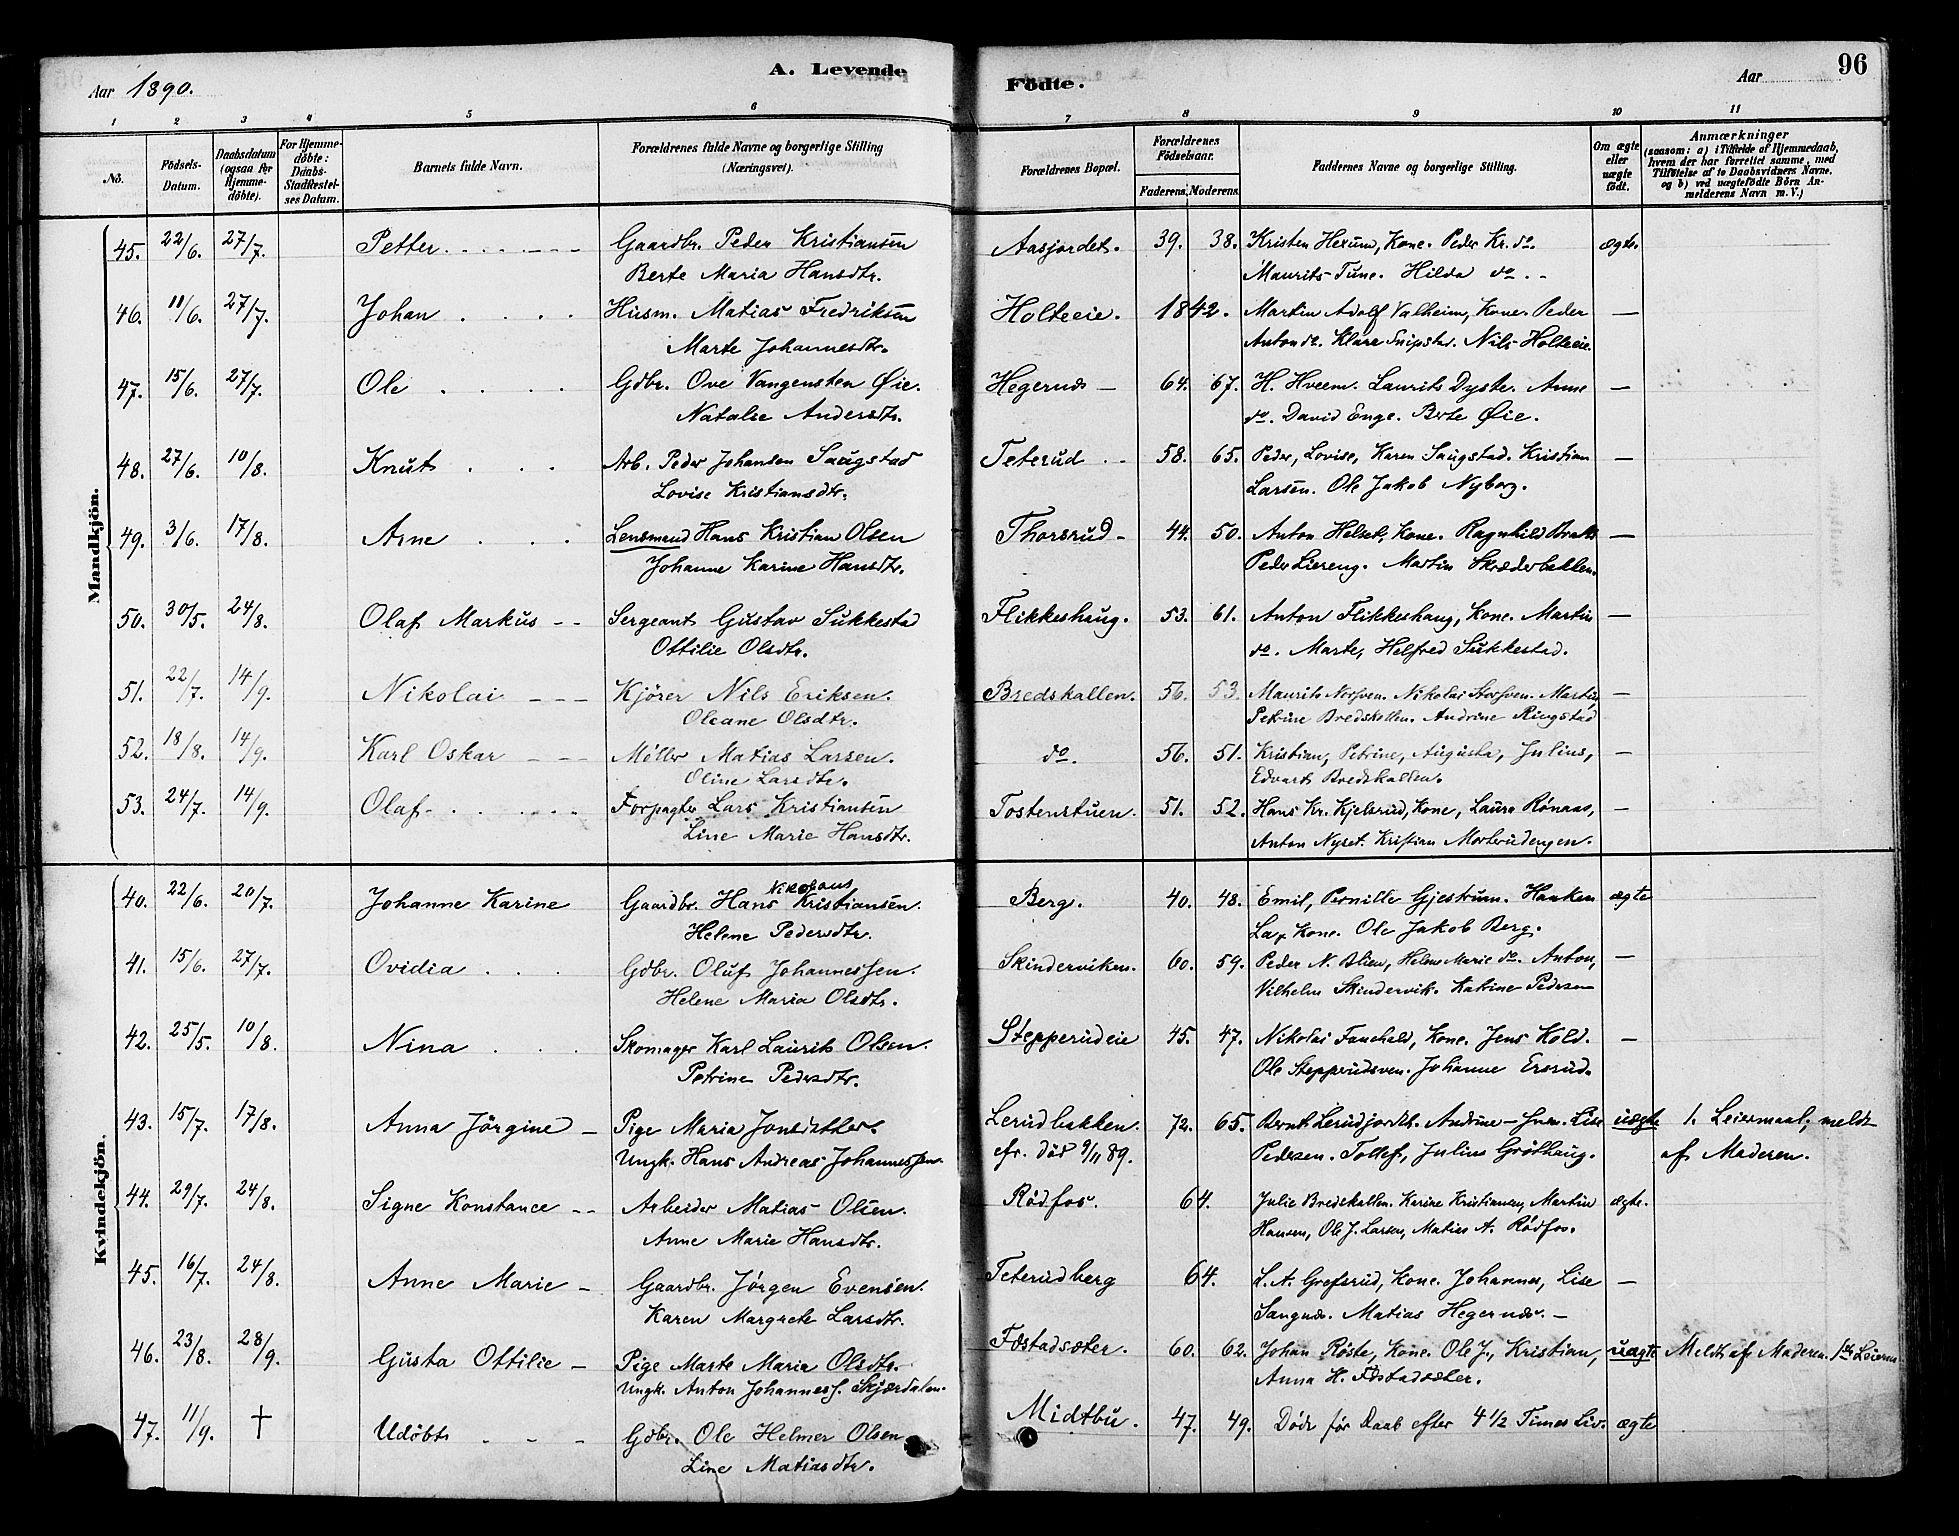 Aar 1890. A. Levende Födte. Aar 96
1 2 3 4 5 6 7 8 9 10 11
No. Födsels-Datum. Daabsdatum (ogsaa for Hjemmedöbte). For Hjemmedöbte: Daabs-Stadfæstelses Datum. Barnets fulde Navn. Forældrenes fulde Navne og borgerlige Stilling (Næringsvei). Forældrenes Bopæl. Forældrenes Födselsaar. Faderens. Moderens. Faddernes Navne og borgerlige Stilling. Om ægte eller uægte födt. Anmærkninger (saasom: a) i Tilfælde af Hjemmedaab, hvem der har forrettet samme, med Tilföielse af to Daabsvidners Navne, og b) ved uægtefödte Börn Anmelderens Navn m. V.)
Mandkjön.
45. 22/6. 27/7. Petter Gaardbr. Peder Kristiansen Aasjordet. 39. 38. Kristen Hexum, Kone. Peder Kr. do. ægte.
Berte Maria Hansdtr. Maurits Tune. Hilda do.
46. 11/6. 27/7. Johan Husm. Matias Fredriksen Holteeie. 1842. Martin Adolf Valheim, Kone. Peder —
Marte Johannesdtr. Anton do. Klara Snipstad. Nils Holteeie.
47. 15/6. 27/7. Ole Gdbr. Ove Vangensten Øie. Hegernæs — 64. 67. H. Hveem. Laurits Dyste. Anne —
Natalie Andersdtr. do. David Enge. Berte Øie.
48. 27/6. 10/8. Knut Arb. Peder Johansen Saugstad Teterud 58. 65. Peder, Lovise, Karen Saugstad. Kristian —
Lovise Kristiansdtr. Larsen. Ole Jakob Nyborg.
49. 3/6. 17/8. Arne Lensmand Hans Kristian Olsen Thorsrud 44. 50. Anton Helset, Kone. Ragnhild —
Johanne Karine Hansdtr. Peder Liereng. Martin Skræderbakken.
50. 30/5. 24/8. Olaf Markus Sergeant Gustav Sukkestad Flikkeshaug. 53. 61. Anton Flikkeshaug, Kone. Martin —
Ottilie Olsdtr. do. Marte, Helfred Sukkestad.
51. 22/7. 14/9. Nikolai Kjörer Nils Eriksen. Bredskallen. 56. 53. Maurits Norsven. Nikolai Storsven. Martin —
Oleane Olsdtr. Petrine Bredskallen. Andrine Ringstad
52. 18/8. 14/9. Karl Oskar Møller Matias Larsen. do. 56. 51. Kristian, Petrine, Augusta, Julius, —
Oline Larsdtr. Edvart Bredskallen.
53. 24/7. 14/9. Olaf Forpagter Lars Kristiansen Tostenstuen. 51. 52. Hans Kr. Kjelsrud, Kone, Laura Rönaas, —
Line Marie Hansdtr. Anton Nyset. Kristian Morterudengen.
Kvindekjön.
Nikolaus
40. 22/6. 20/7. Johanne Karine Gaardbr. Hans Kristiansen. Berg. 40. 48. Emil, Pernille Gjestrum. Haaken ægte
Helene Pedersdtr. Kone. Ole Jakob Berg.
41. 15/6. 27/7. Ovidia Gdbr. Oluf Johannessen. Skinderviken. 60. 59. Peder N. Blien, Helene Marie do. Anton, —
Helene Maria Olsdtr. Vilhelm Skindervik. Katrine Pedersen
42. 25/5. 10/8. Nina Skomager Karl Laurits Olsen. Stepperudeie 45. 47. Nikolai Fauchald, Kone. Jens Kold. —
Petrine Pedersdtr. Ole Stepperudsven. Johanne Ersrud.
43. 15/7. 17/8. Anna Jörgine Pige Maria Jonsdatter. Lerudbakken. 72. 65. Bernt Lerudjordet. Andrine Lise uægte 1. Leiermaal, meldt
Ungk. Hans Andreas Johannessen. efr. död 9/11 89. Pedersen. Tollef, Julius Gröthaug. af Moderen.
44. 29/7. 24/8. Signe Konstance Arbeider Matias Olsen. Rödfos. 64. Julie Bredskallen. Karine Kristiansen, Martin ægte.
Anne Marie Hansdtr. Hansen, Ole J. Larsen, Matias A. Rödfos.
45. 16/7. 24/8. Anne Marie Gaardbr. Jörgen Evensen. Teterudberg 64. L. A. Grefsrud, Kone. Johannes, Lise —
Karen Margrete Larsdtr. Sangnæs. Matias Hegernæs. —
46. 23/8. 28/9. Gusta Ottilie Pige Marte Maria Olsdtr. Fostadsæter. 60. 62. Johan Röste, Kone. Ole J., Kristian, uægte Meldt af Moderen. 1ste Leierm
Ungk. Anton Johanness. Skjærdalen. Anna H. Fostadsæter.
47. 11/9. † Udöbt Gdbr. Ole Helmer Olsen Midtbu. 47. 49. Döde för Daab efter 4 1/2 Times Liv. ægte
Line Matiasdtr.